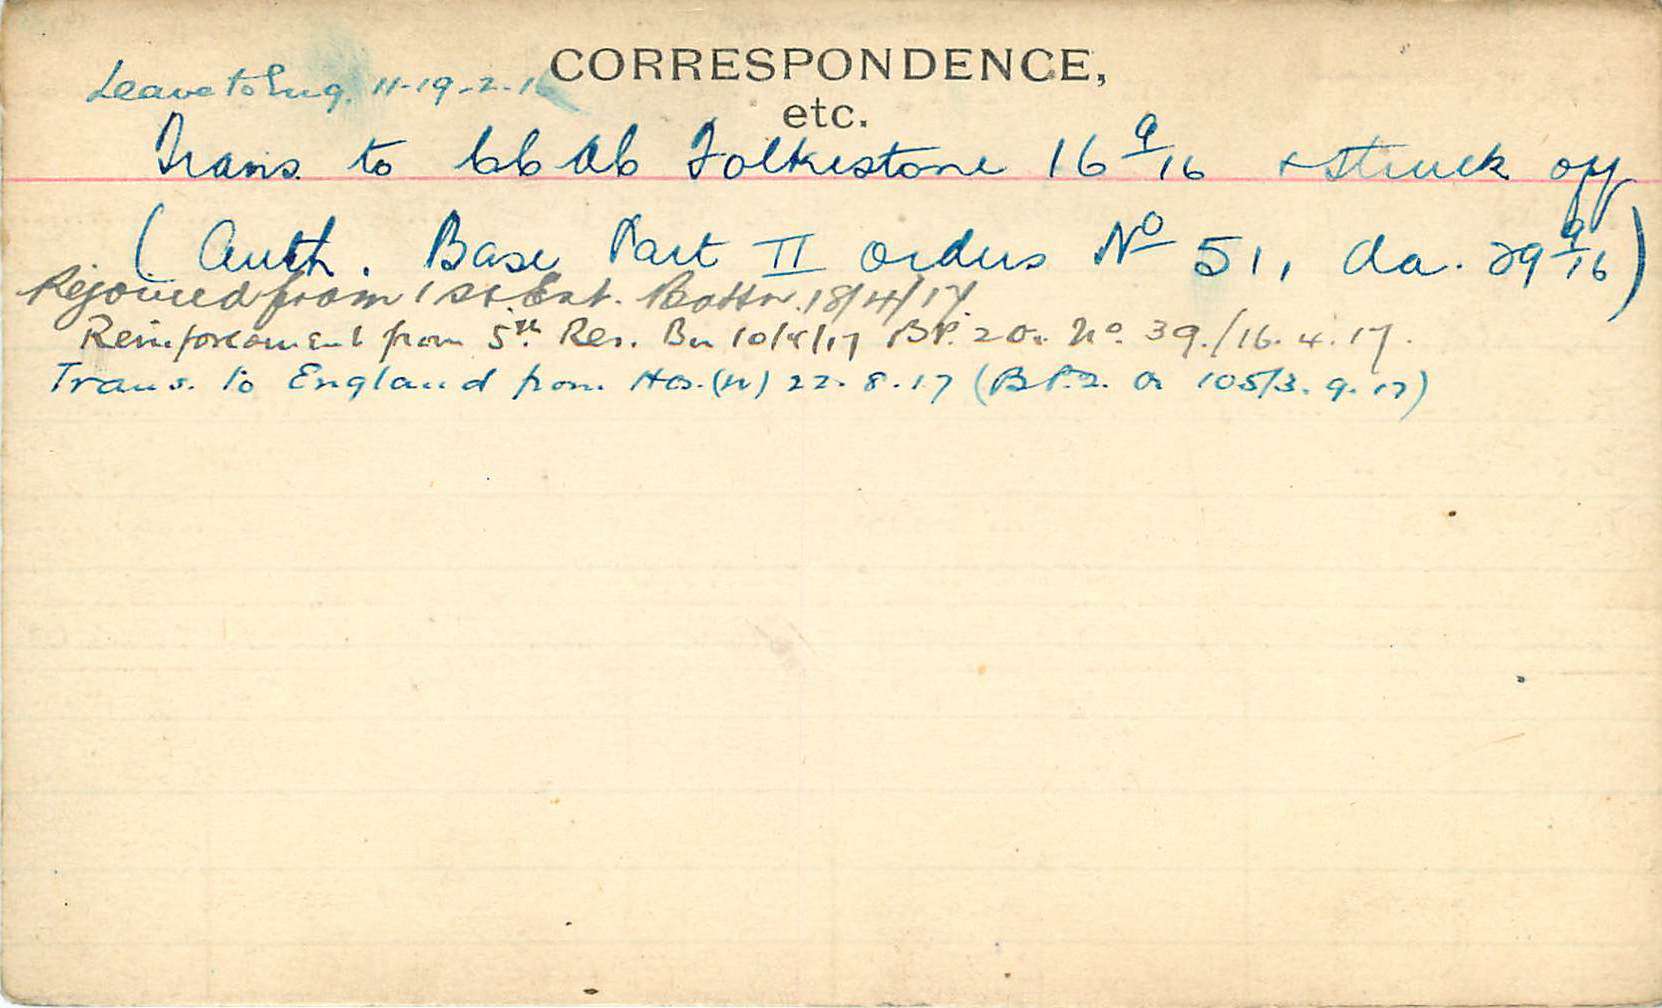 CORRESPONDENCE,
etc.
Leave to Eng. 11-19-2-16
Trans. to CCAC Folkestone 16 9/16 + struck off
(Auth. Base Part II orders No 51, da. 29 9/16)
Rejoined from 1st Ent. Battn. 18/4/17
Reinforcement from 5th Res. Bn 10/4/17 BP. 2 Or. No. 39./16.4.17.
Trans. to England from Hos. (W) 22.8.17 (B P.2. Or 105/3.9.17)